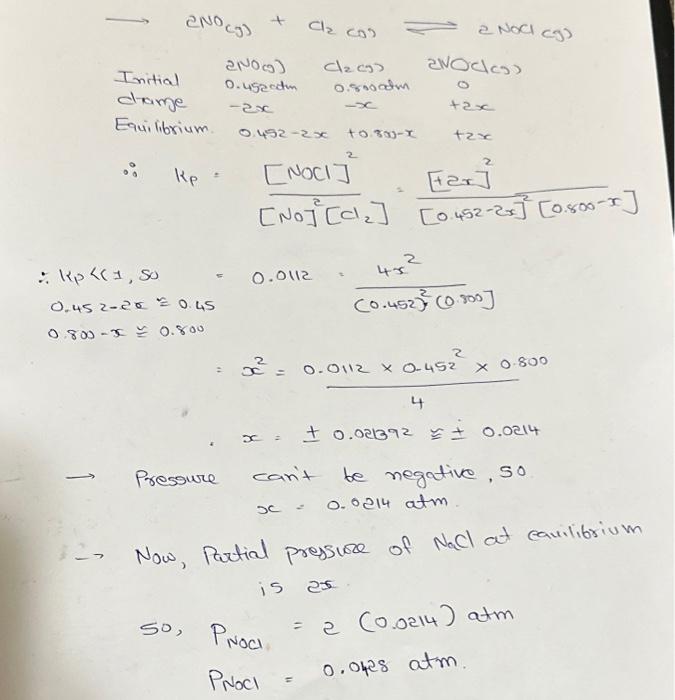 → 2NO(g) + Cl2 (g) ⇌ 2 NOCl (g)
2NO(g) Cl2(g) 2NOCl(g)
Initial 0.452atm 0.800atm 0
change -2x -x +2x
Equilibrium. 0.452-2x +0.800-x +2x
∴ Kp = [NOCl]² / [NO]² [Cl2] = [+2x]² / [0.452-2x]² [0.800-x]
∴ Kp<<1, so = 0.0112 = 4x² / (0.452)² (0.800]
0.452-2x ≅ 0.45
0.800-x ≅ 0.800
= x² = 0.0112 × 0.452² × 0.800 / 4
x = ± 0.021392 ≅ ± 0.0214
→ Pressure can't be negative, so
x = 0.0214 atm.
→ Now, Partial pressure of NoCl at equilibrium
is 2x.
SO, PNOCl = 2 (0.0214) atm
PNOCl = 0.0428 atm.